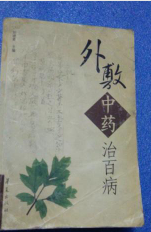 外敷
中药
治百病